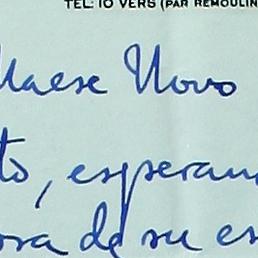 TEL: 10 VERS (PAR REMOULIN
Maese Novo
to, esperan
sa de su es